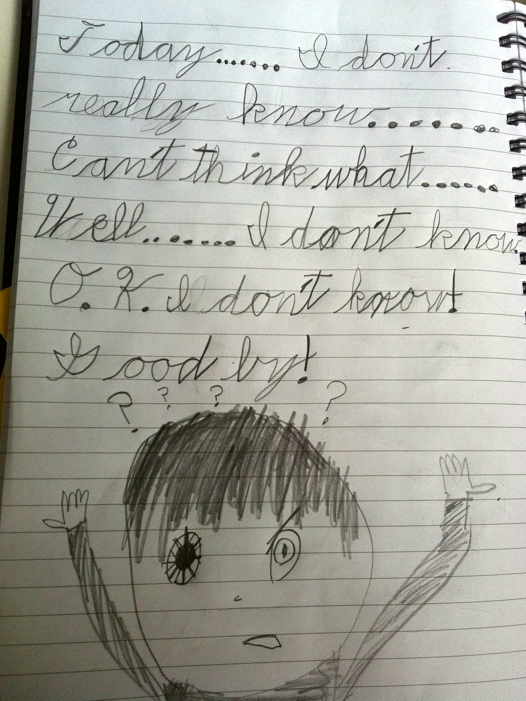 Today....... I don't.
really know........
Can't think what.......
Well....... I don't know
O.K. I don't know!
Good by!
? ? ? ?